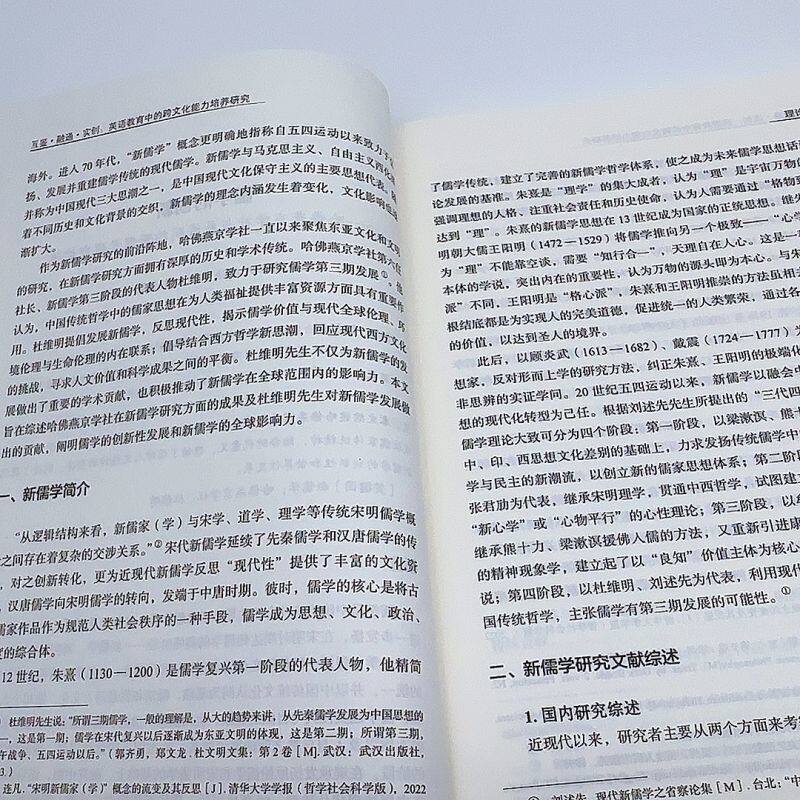 互鉴·融通·实创:英语教育中的跨文化能力培养研究
海外。进入70年代,“新儒学”概念更明确地指称自五四运动以来致力于
扬、发展并重建儒学传统的现代儒学。新儒学与马克思主义、自由主义西化
并称为中国现代三大思潮之一,是中国现代文化保守主义的主要思想代表。随
着不同历史和文化背景的交织,新儒学的理念内涵发生着变化,文化影响也逐
渐扩大。
作为新儒学研究的前沿阵地,哈佛燕京学社一直以来聚焦东亚文化和文明
的研究,在新儒学研究方面拥有深厚的历史和学术传统。哈佛燕京学社第六任
社长、新儒学第三阶段的代表人物杜维明,致力于研究儒学第三期发展①。他
认为,中国传统哲学中的儒家思想在为人类福祉提供丰富资源方面具有重要作
用。杜维明提倡发展新儒学,反思现代性,揭示儒学价值与现代全球伦理、环
境伦理与生命伦理的内在联系;倡导结合西方哲学新思潮,回应现代西方文化
的挑战,寻求人文价值和科学成果之间的平衡。杜维明先生不仅为新儒学的发
展做出了重要的学术贡献,也积极推动了新儒学在全球范围内的影响力。本文
旨在综述哈佛燕京学社在新儒学研究方面的成果及杜维明先生对新儒学发展做
出的贡献,阐明儒学的创新性发展和新儒学的全球影响力。
一、新儒学简介
“从逻辑结构来看,新儒家(学)与宋学、道学、理学等传统宋明儒学概
之间存在着复杂的交涉关系。”②宋代新儒学延续了先秦儒学和汉唐儒学的传
,对之创新转化,更为近现代新儒学反思“现代性”提供了丰富的文化资
。汉唐儒学向宋明儒学的转向,发端于中唐时期。彼时,儒学的核心是将古
儒家作品作为规范人类社会秩序的一种手段,儒学成为思想、文化、政治、
的综合体。
12世纪,朱熹(1130—1200)是儒学复兴第一阶段的代表人物,他精简
杜维明先生说:“所谓三期儒学,一般的理解是,从大的趋势来讲,从先秦儒学发展为中国思想的
一,这是第一期;儒学在宋代复兴以后逐渐成为东亚文明的体现,这是第二期;所谓第三期,
午战争、五四运动以后。”(郭齐勇,郑文龙.杜文明文集:第2卷[M].武汉:武汉出版社,
3.)
连凡.“宋明新儒家(学)”概念的流变及其反思[J].清华大学学报(哲学社会科学版),2022
理论
了儒学传统,建立了完善的新儒学哲学体系,使之成为未来儒学思想话
论发展的基准。朱熹是“理学”的集大成者,认为“理”是宇宙万物
强调理想的人格、注重社会责任和历史使命,认为人需要通过“格物
达到“理”。朱熹的新儒学思想在13世纪成为国家的正统思想。继
明朝大儒王阳明(1472—1529)将儒学推向另一个极致——“心学
为“理”不能靠空谈,需要“知行合一”,天理自在人心。这是一
本体的学说,突出内在的重要性,认为万物的源头即为本心。与
派”不同,王阳明是“格心派”,朱熹和王阳明推崇的方法虽相
根结底都是为实现人的完美道德,促进统一的人类繁荣,通过名
的价值,以达到圣人的境界。
此后,以顾炎武(1613—1682)、戴震(1724—1777)为
想家,反对形而上学的研究方法,纠正朱熹、王阳明的极端化
非思辨的实证学问。20世纪五四运动以来,新儒学以融会中
想的现代化转型为己任。根据刘述先先生所提出的“三代四
儒学理论大致可分为四个阶段:第一阶段,以梁漱溟、熊十
中、印、西思想文化差别的基础上,力求发扬传统儒学中
学与民主的新潮流,以创立新的儒家思想体系;第二阶段
张君劢为代表,继承宋明理学,贯通中西哲学,试图建
“新心学”或“心物平行”的心性理论;第三阶段,以
继承熊十力、梁漱溟援佛入儒的方法,又重新引进康
的精神现象学,建立起了以“良知”价值主体为核心
说;第四阶段,以杜维明、刘述先为代表,利用现代
国传统哲学,主张儒学有第三期发展的可能性。①
二、新儒学研究文献综述
1.国内研究综述
近现代以来,研究者主要从两个方面来考
① 刘述先.现代新儒学之省察论集[M].台北:“中